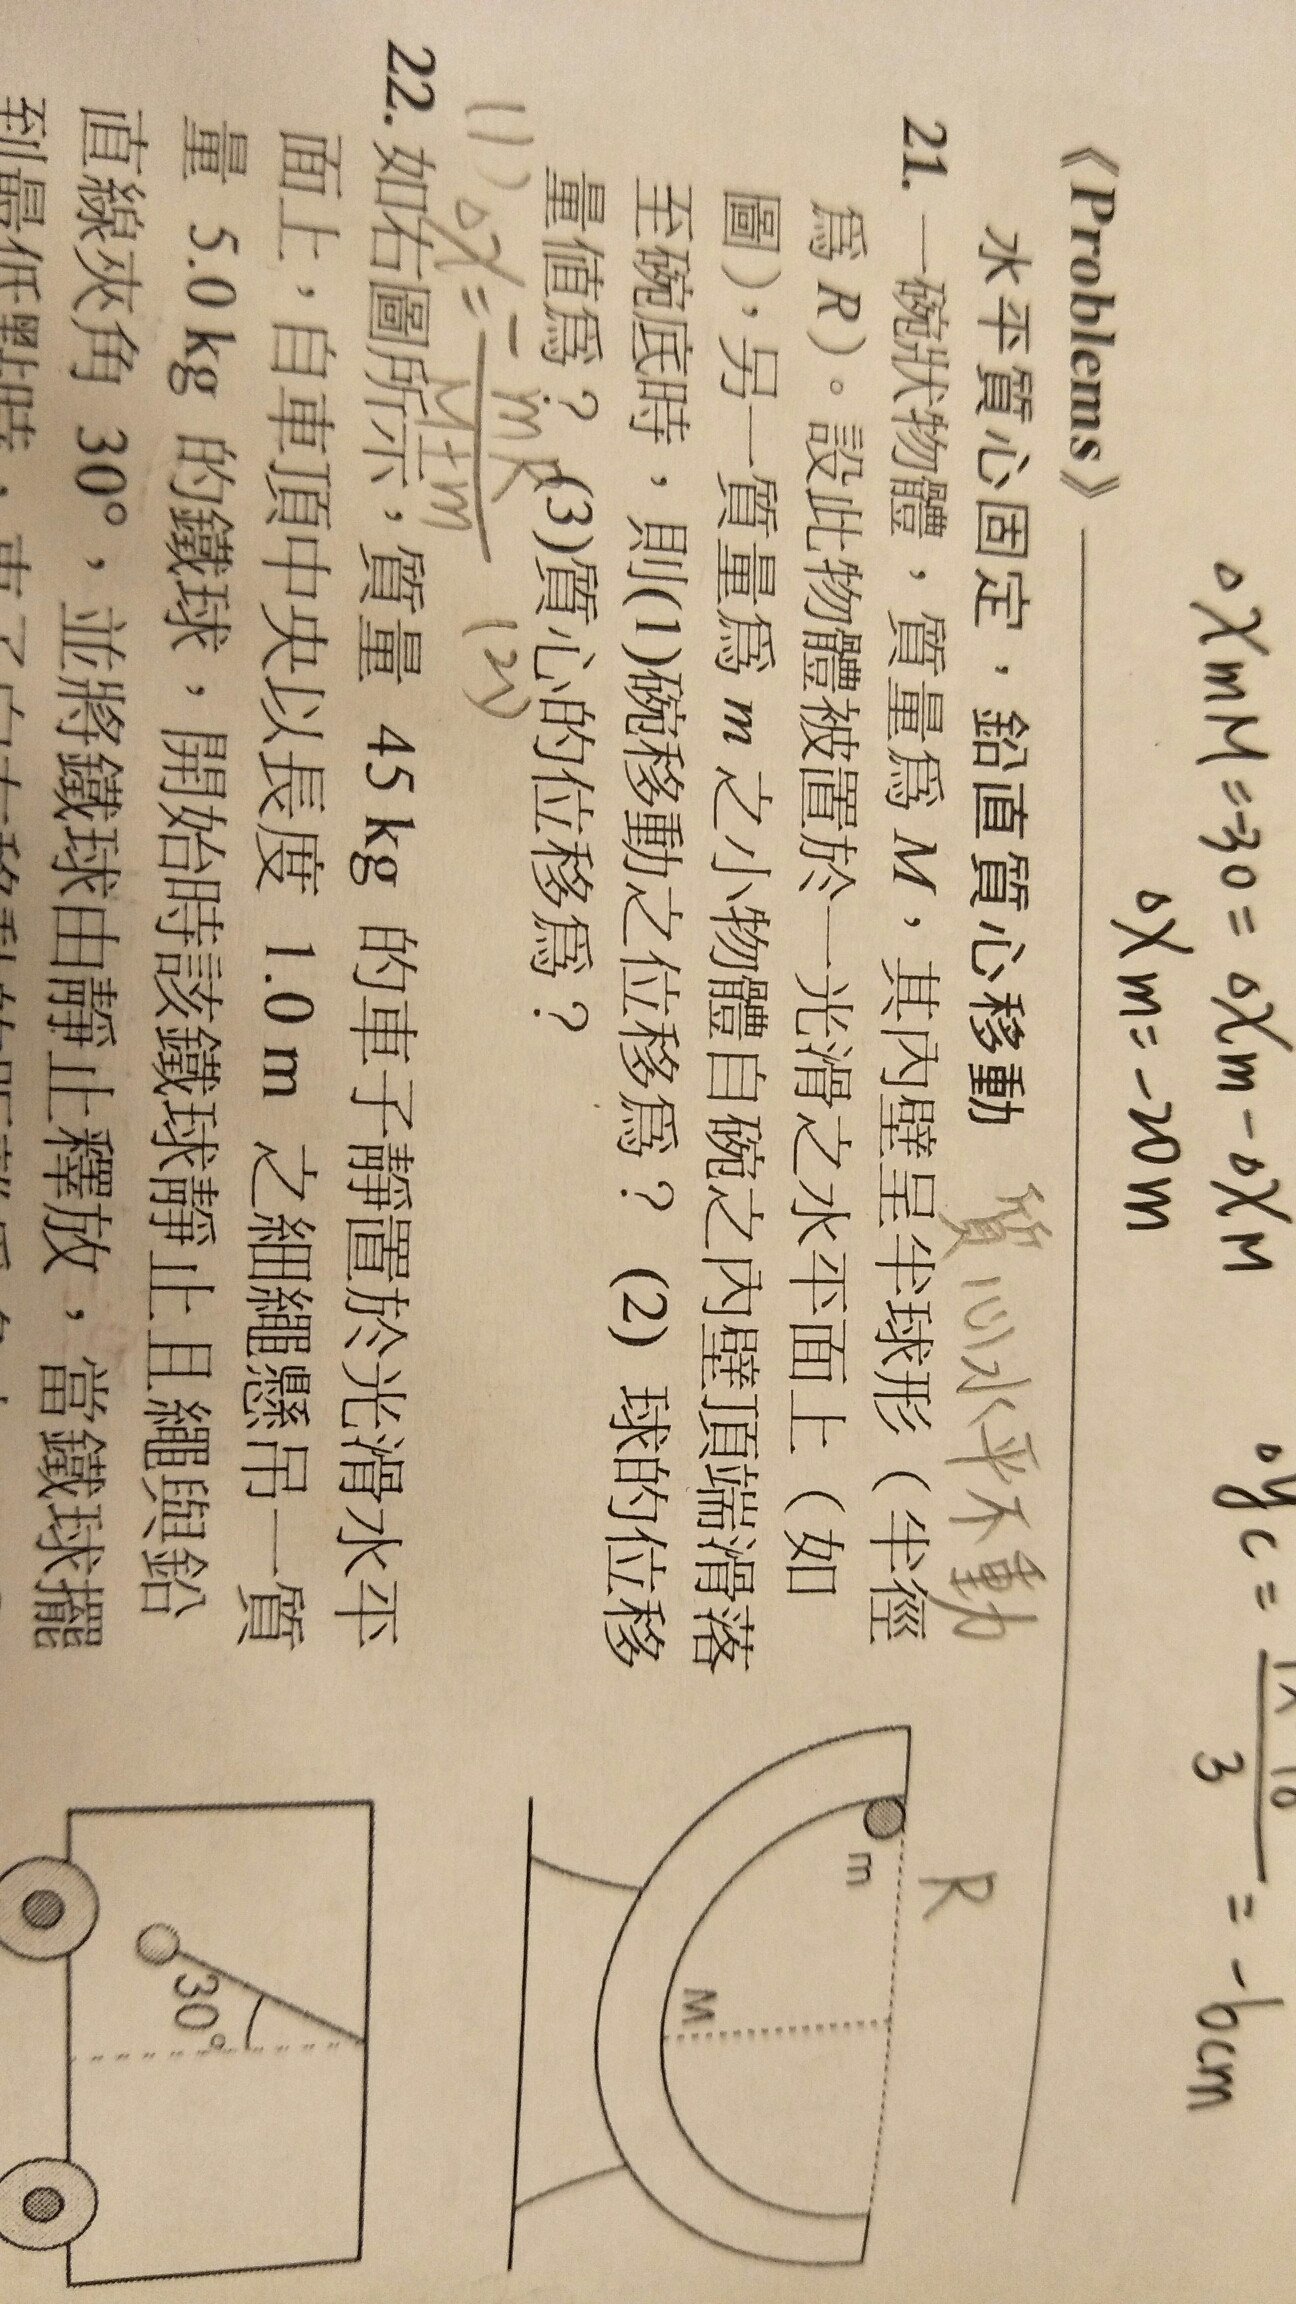 ΔXmM=-30=ΔXm-ΔXM
ΔXm=-20m
= -6cm
《Problems》
水平質心固定，鉛直質心移動 質心水平不動
21. 一碗狀物體，質量為 M，其內壁呈半球形（半徑
為 R）。設此物體被置於一光滑之水平面上（如
圖），另一質量為 m 之小物體自碗之內壁頂端滑落
至碗底時，則(1)碗移動之位移為？ (2) 球的位移
量值為？ (3)質心的位移為？
R
m
M
(1) Δx=-mR/M+m (2)
22. 如右圖所示，質量 45 kg 的車子靜置於光滑水平
面上，自車頂中央以長度 1.0 m 之細繩懸吊一質
量 5.0 kg 的鐵球，開始時該鐵球靜止且繩與鉛
直線夾角 30°，並將鐵球由靜止釋放，當鐵球擺
到最低點時，車子向左移動的距離
30°